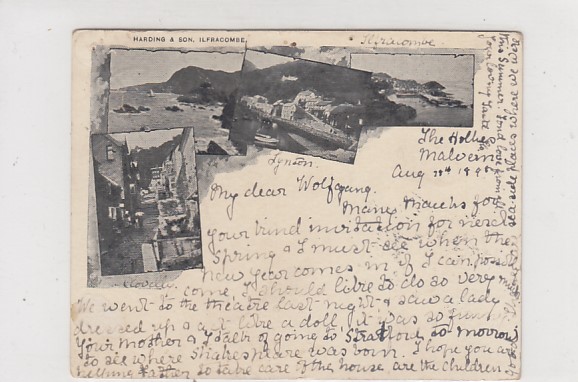 HARDING & SON, ILFRACOMBE.
Ilfracombe
Lynton.
Clovelly.
The Hollies
Malvern
Aug
My dear Wolfgang.
Many thanks for
your kind invitation for next
Spring & I must see when the
New Year comes in if I can possibly
come, I should like to do so very much
We went to the theatre last night & saw a lady
dressed up & act like a doll, it was so funny
Your Mother & I talk of going to Stratford to morrow
to see where Shakespeare was born. I hope you are
helping Father to take care of the house, are the children,
sea side places where we were
this Summer, fond love from
your loving Tante